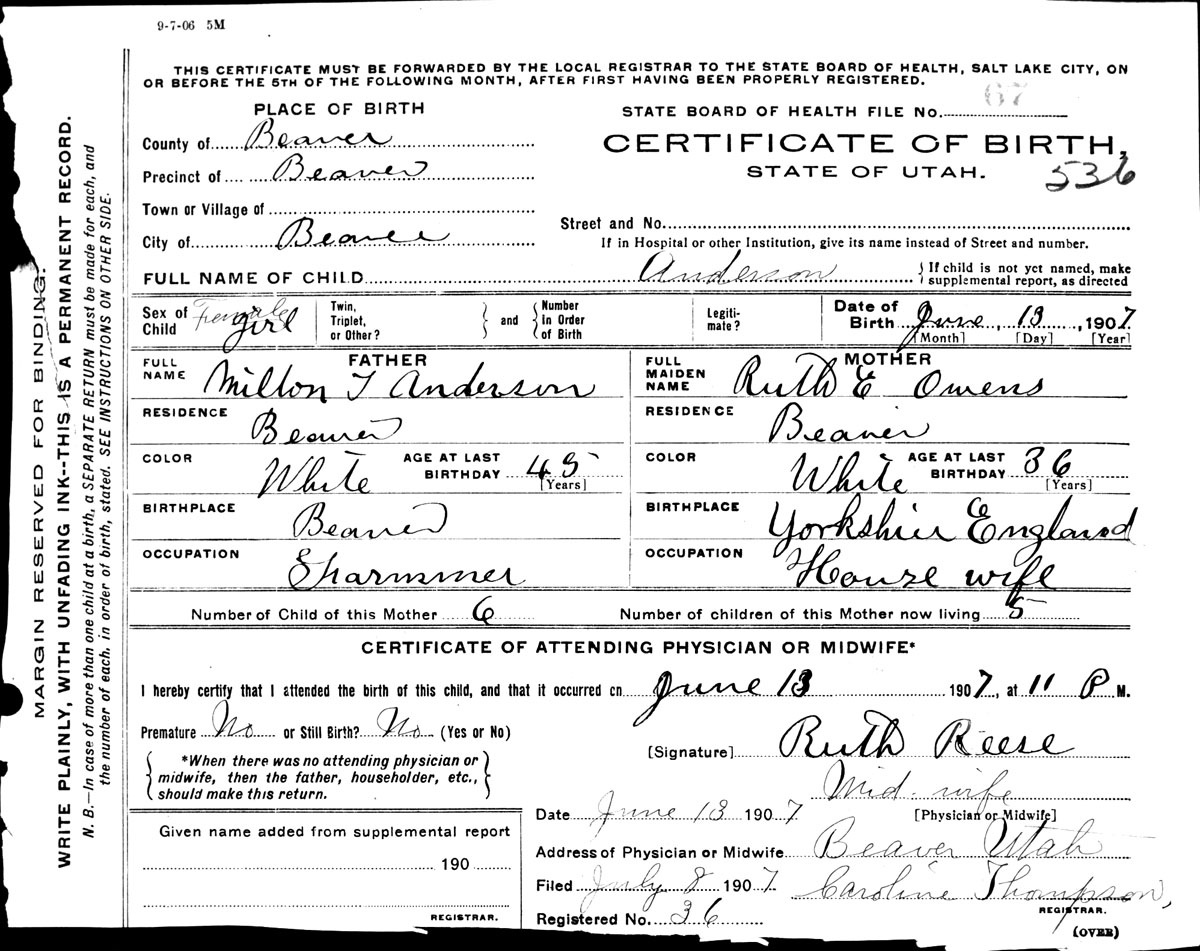 9-7-06 5M
THIS CERTIFICATE MUST BE FORWARDED BY THE LOCAL REGISTRAR TO THE STATE BOARD OF HEALTH, SALT LAKE CITY, ON
OR BEFORE THE 5TH OF THE FOLLOWING MONTH, AFTER FIRST HAVING BEEN PROPERLY REGISTERED.
MARGIN RESERVED FOR BINDING.
WRITE PLAINLY, WITH UNFADING INK--THIS IS A PERMANENT RECORD.
N. B.—In case of more than one child at a birth, a SEPARATE RETURN must be made for each, and
the number of each. in order of birth, stated. SEE INSTRUCTIONS ON OTHER SIDE.
PLACE OF BIRTH
County of Beaver
Precinct of Beaver
Town or Village of
City of Beaver
STATE BOARD OF HEALTH FILE No. 67
CERTIFICATE OF BIRTH,
STATE OF UTAH.
536
Street and No.
If in Hospital or other Institution, give its name instead of Street and number.
FULL NAME OF CHILD Anderson
If child is not yet named, make
supplemental report, as directed
Sex of Child Female girl
Twin, Triplet, or Other?
and
Number In Order of Birth
Legiti-mate?
Date of Birth June, 13, 1907
[Month] [Day] [Year]
FATHER
FULL NAME Milton T Anderson
RESIDENCE Beaver
COLOR White AGE AT LAST BIRTHDAY 45
[Years]
BIRTHPLACE Beaver
OCCUPATION
MOTHER
FULL MAIDEN NAME Ruth E Owens
RESIDENCE Beaver
COLOR White AGE AT LAST BIRTHDAY 36
[Years]
BIRTHPLACE Yorkshir England
OCCUPATION House wife
Number of Child of this Mother 6 Number of children of this Mother now living 5
CERTIFICATE OF ATTENDING PHYSICIAN OR MIDWIFE*
I hereby certify that I attended the birth of this child, and that it occurred on June 13 1907, at 11 P M.
Premature No or Still Birth? No (Yes or No)
*When there was no attending physician or
midwife, then the father, householder, etc.,
should make this return.
[Signature] Ruth Reese
Mid. wife
[Physician or Midwife]
Date June 13 1907
Address of Physician or Midwife Beaver Utah
Filed July 8 1907 Caroline Thompson,
REGISTRAR.
Registered No. 36
(OVER)
Given name added from supplemental report
190
REGISTRAR.